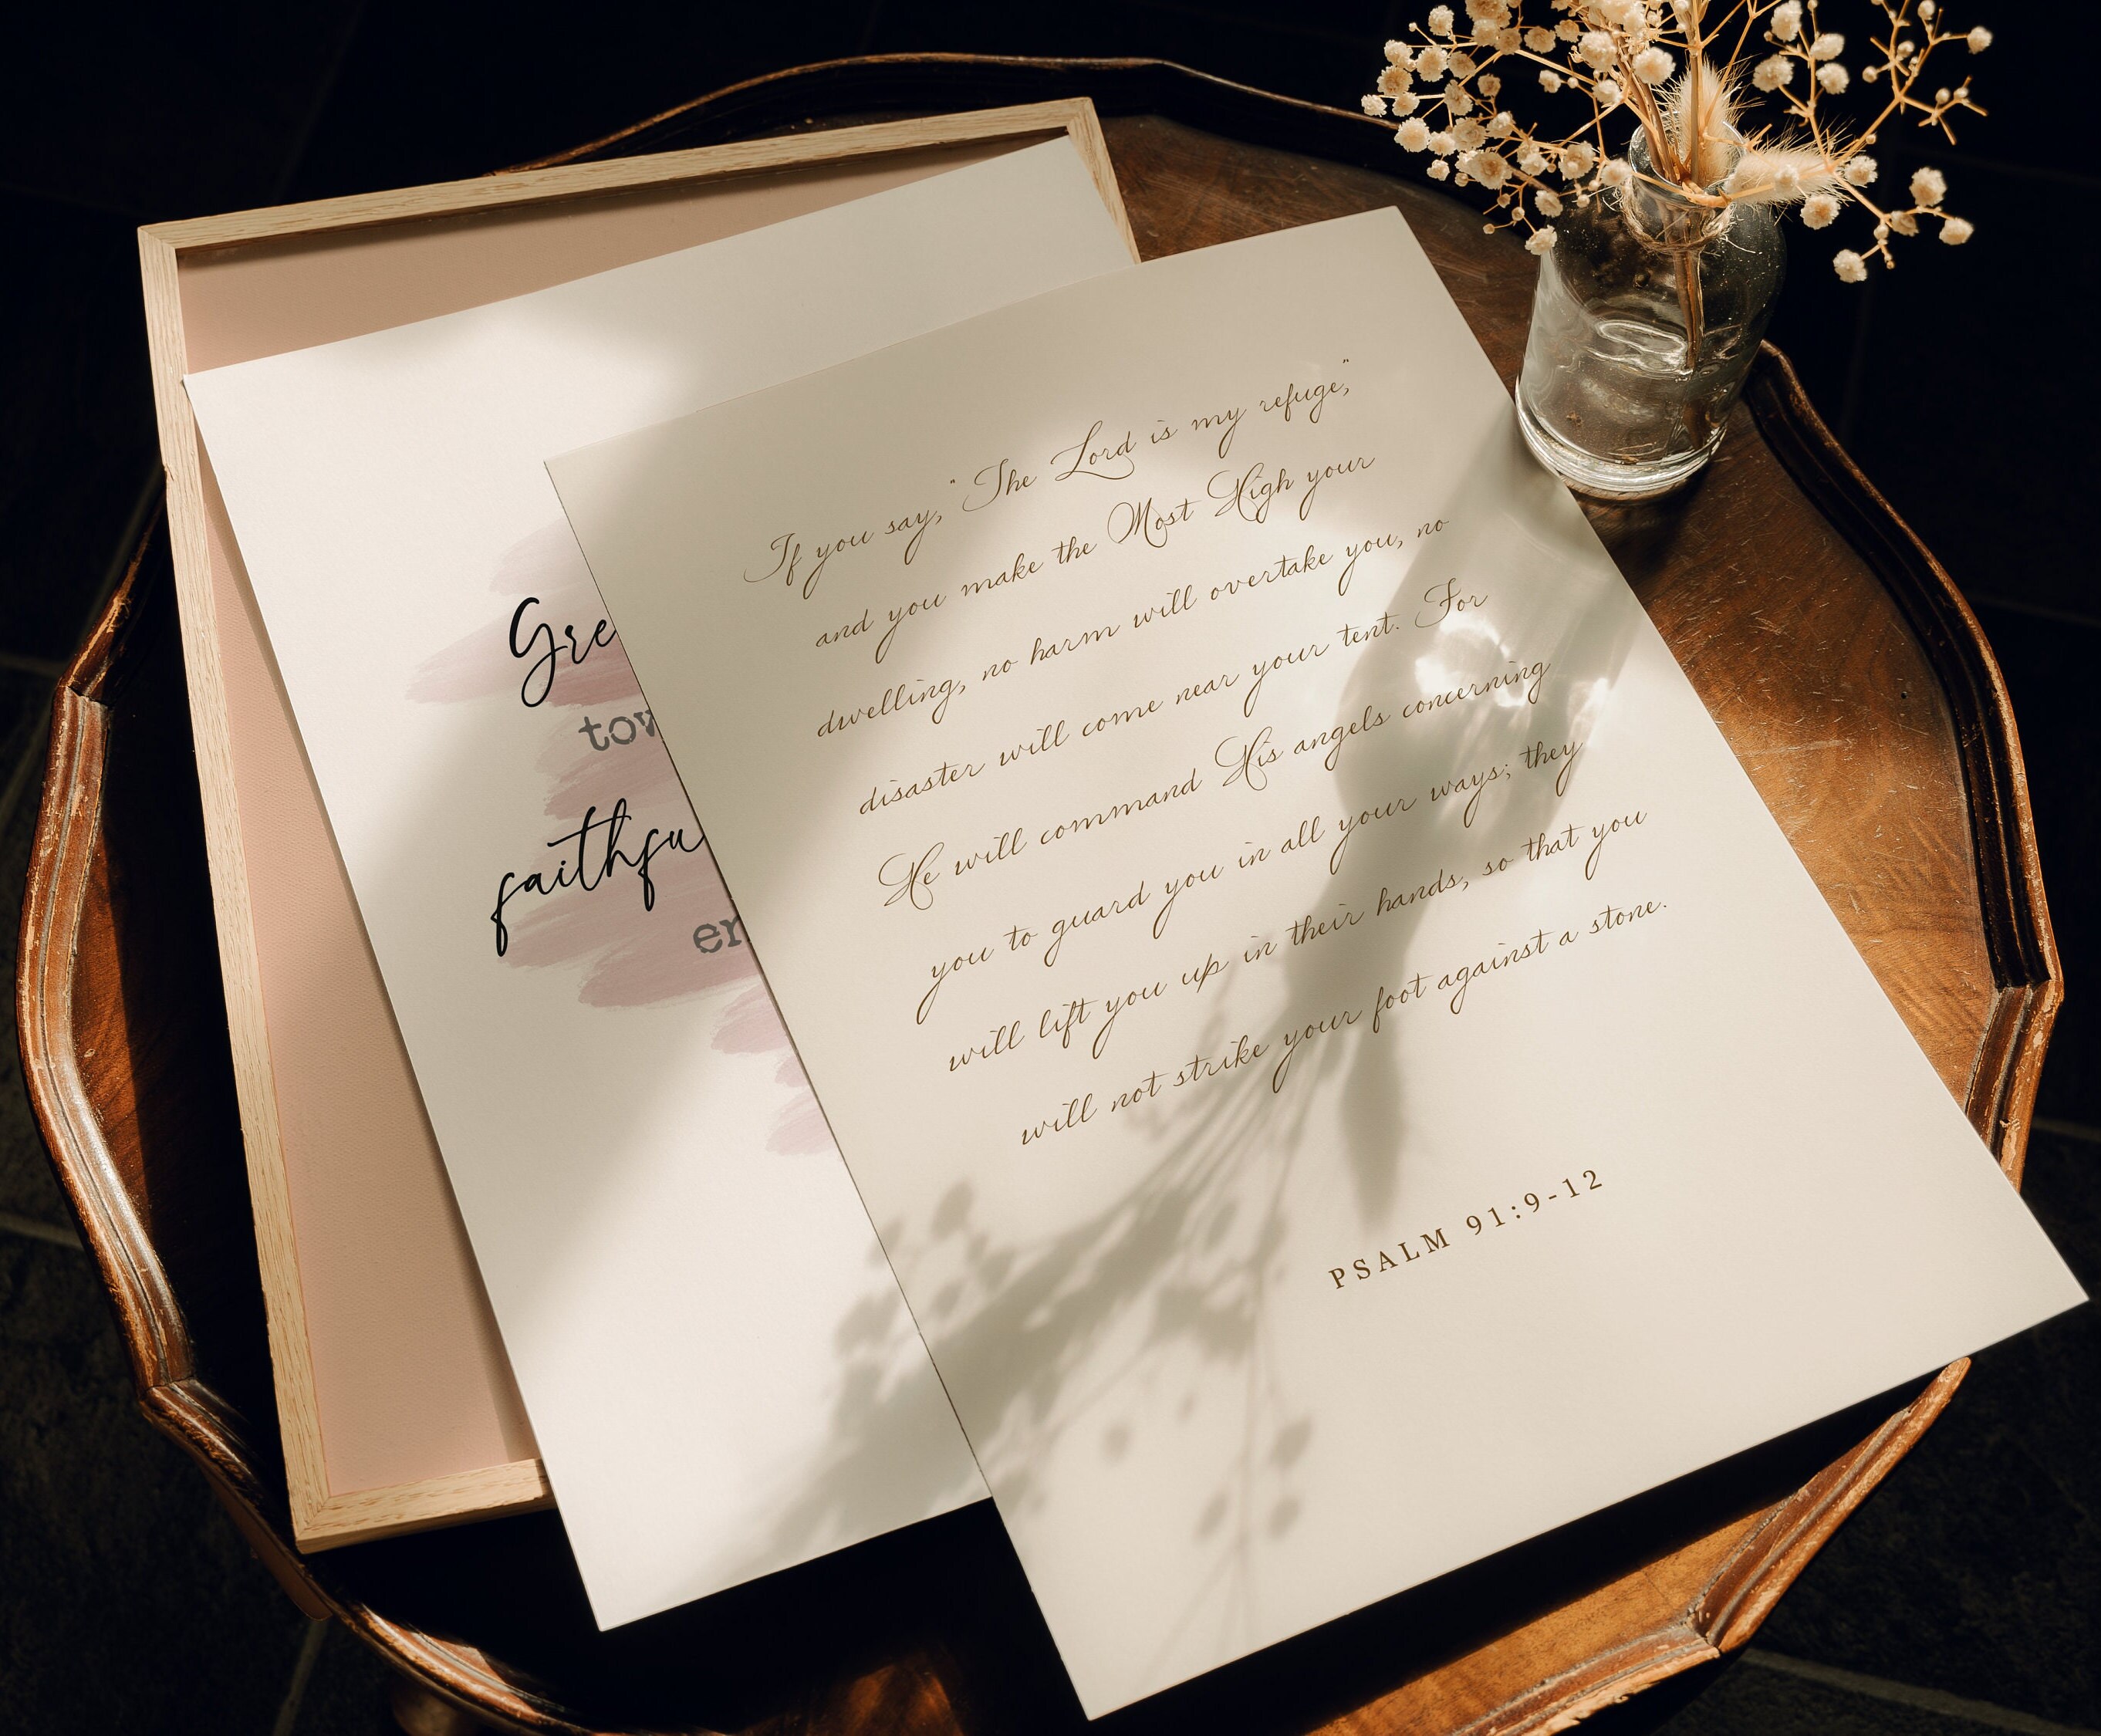 If you say, "The Lord is my refuge,"
and you make the Most High your
dwelling, no harm will overtake you, no
disaster will come near your tent. For
He will command His angels concerning
you to guard you in all your ways; they
will lift you up in their hands, so that you
will not strike your foot against a stone.
PSALM 91:9-12
Gre
tow
faithfu
en